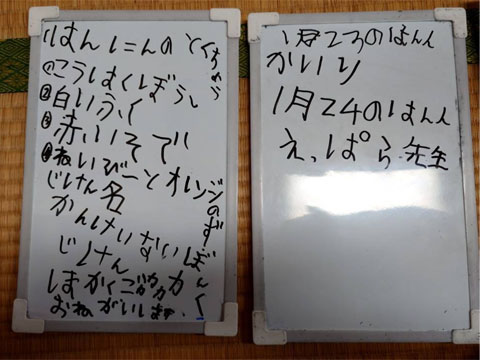 はんにんのとくちょう
①こうはくぼうし
②白いふく
③赤いそで
④ねいびーとオレンジのずぼん
じけん名
かんけいないじけん
ごカカカ
おねがいします。
1月23のはんん
かいり
1月24のはんん
えっぱら先生